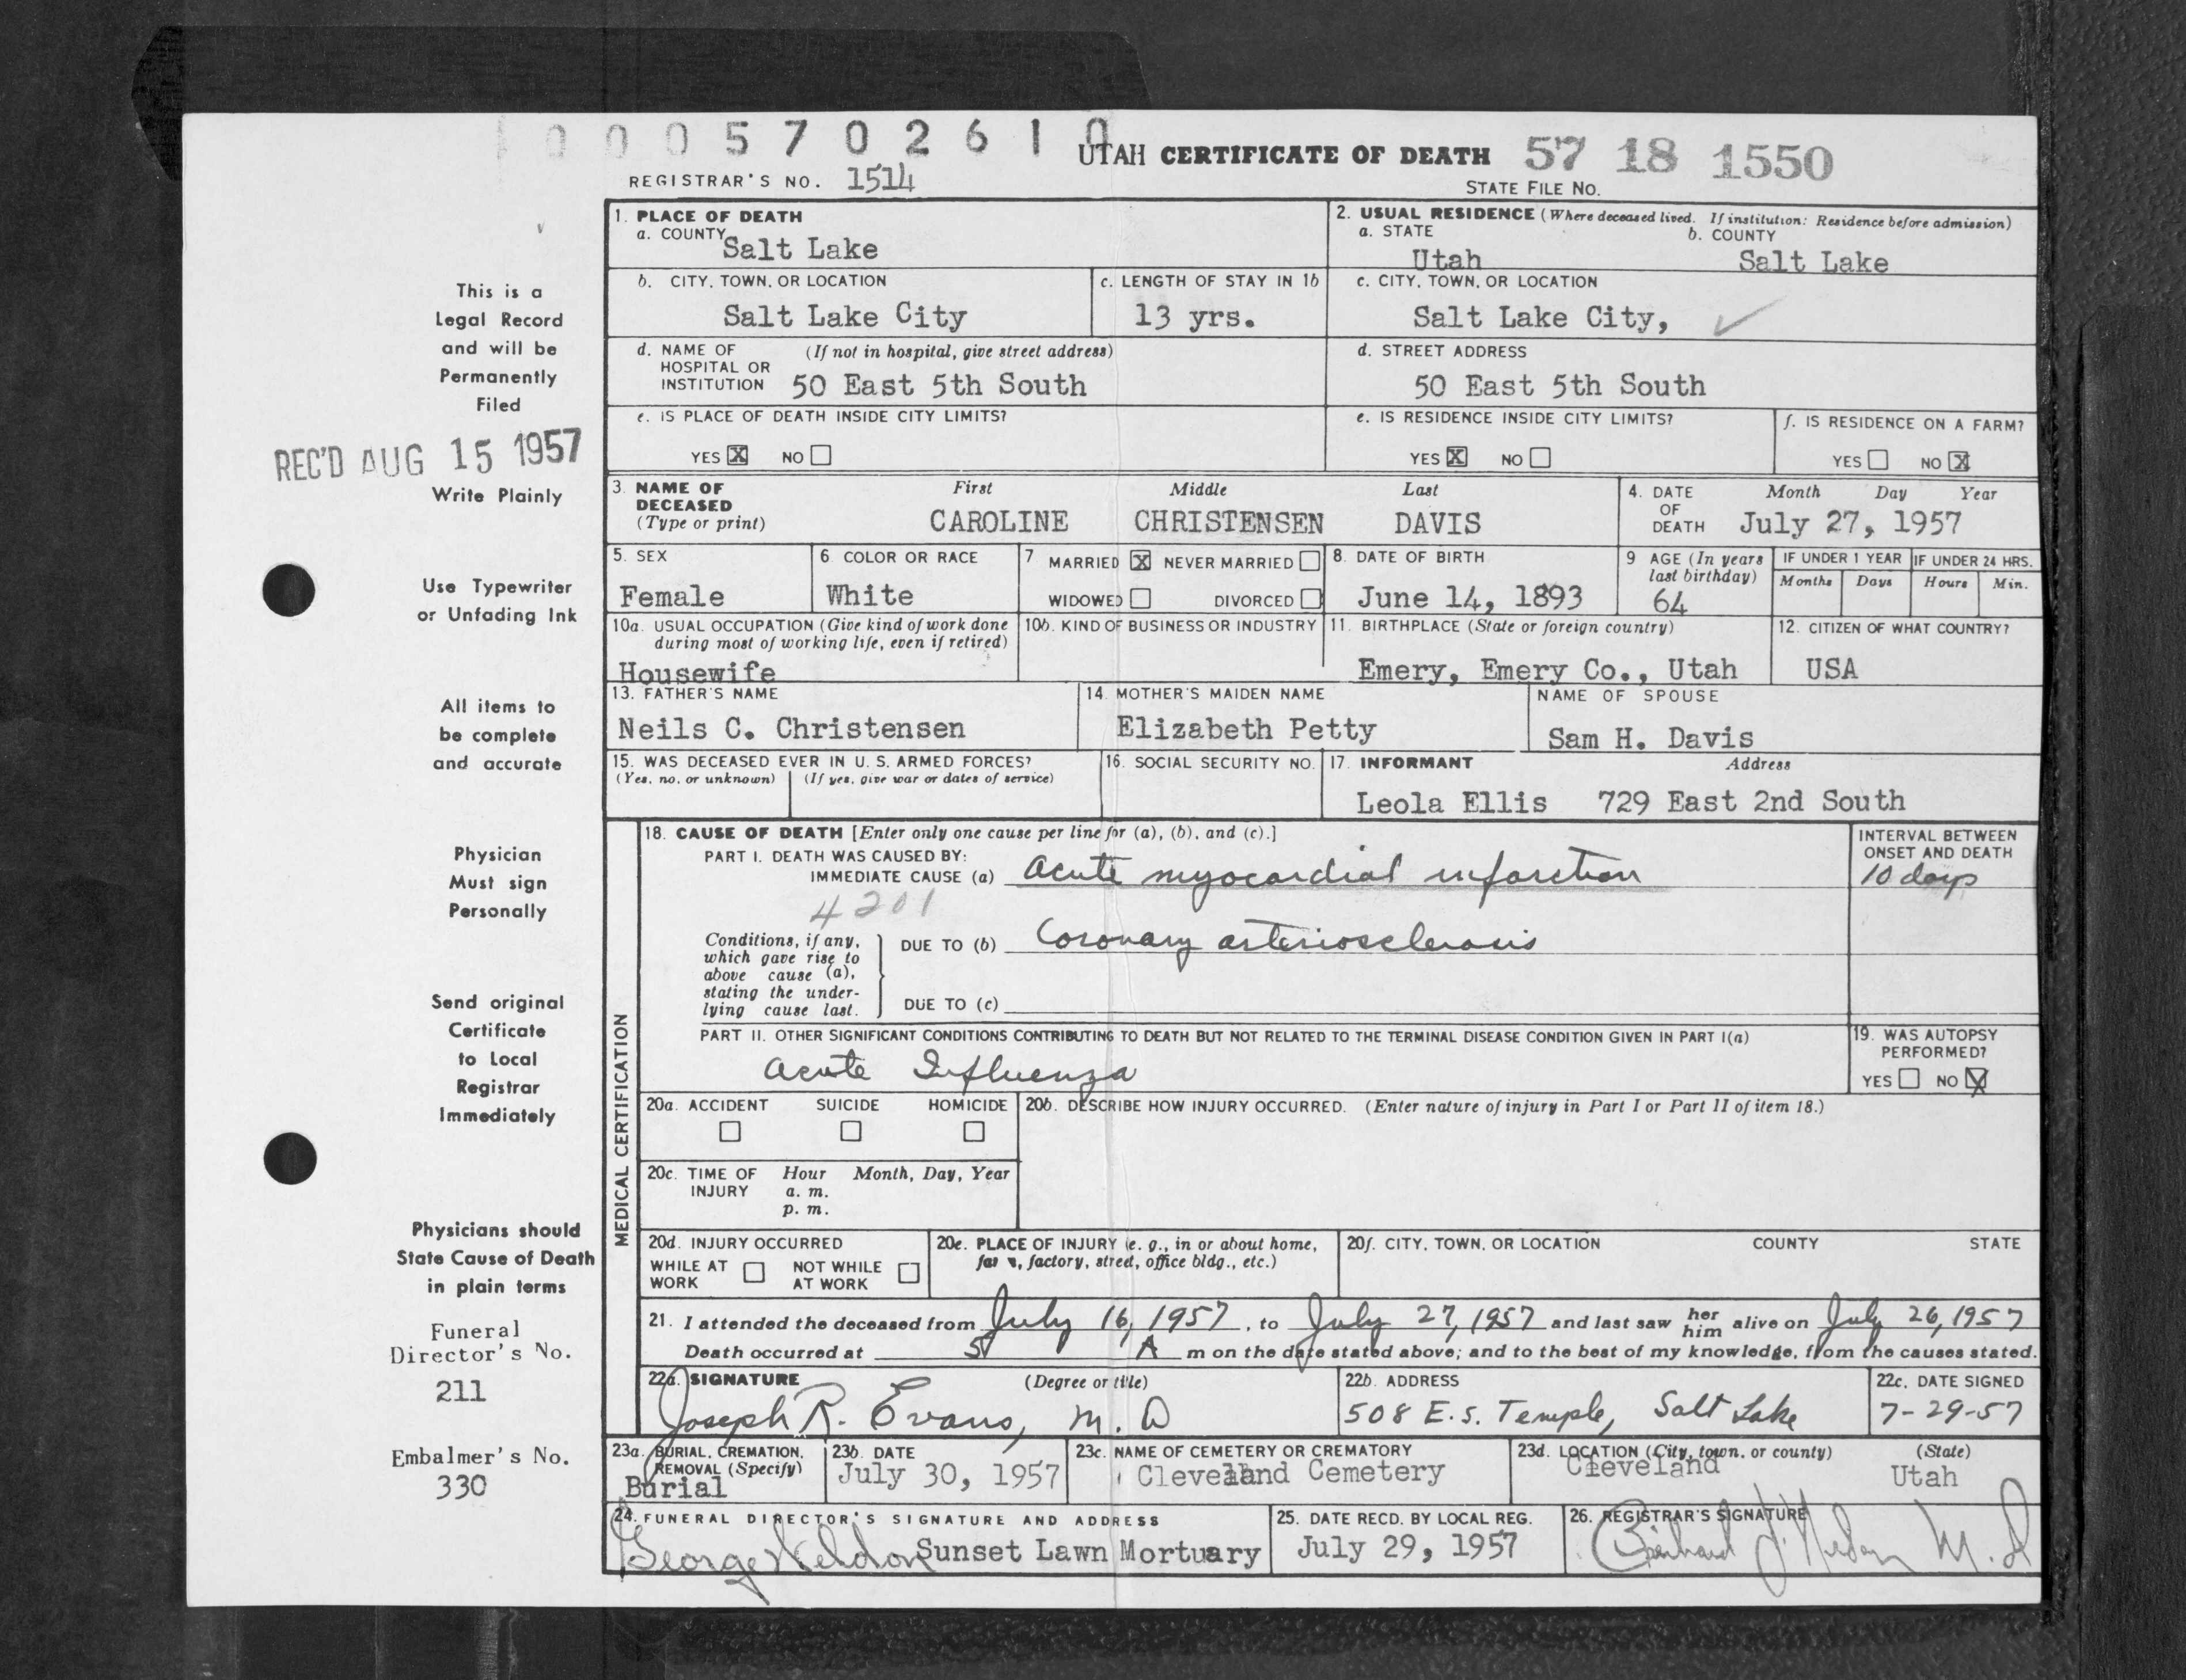 0 0 0 5 7 0 2 6 1 0
UTAH CERTIFICATE OF DEATH 57 18 1550
REGISTRAR'S NO. 1514
STATE FILE NO.
This is a
Legal Record
and will be
Permanently
Filed
REC'D AUG 15 1957
Write Plainly
Use Typewriter
or Unfading Ink
All items to
be complete
and accurate
Physician
Must sign
Personally
Send original
Certificate
to Local
Registrar
Immediately
Physicians should
State Cause of Death
in plain terms
Funeral
Director's No.
211
Embalmer's No.
330
1. PLACE OF DEATH
a. COUNTY
Salt Lake
2. USUAL RESIDENCE (Where deceased lived. If institution: Residence before admission)
a. STATE b. COUNTY
Utah Salt Lake
b. CITY, TOWN, OR LOCATION
Salt Lake City
c. LENGTH OF STAY IN 1b
13 yrs.
c. CITY, TOWN, OR LOCATION
Salt Lake City,
d. NAME OF (If not in hospital, give street address)
HOSPITAL OR
INSTITUTION 50 East 5th South
d. STREET ADDRESS
50 East 5th South
e. IS PLACE OF DEATH INSIDE CITY LIMITS?
YES X NO
e. IS RESIDENCE INSIDE CITY LIMITS?
YES X NO
f. IS RESIDENCE ON A FARM?
YES NO X
3. NAME OF First Middle Last
DECEASED
(Type or print) CAROLINE CHRISTENSEN DAVIS
4. DATE Month Day Year
OF
DEATH July 27, 1957
5. SEX
Female
6. COLOR OR RACE
White
7 MARRIED X NEVER MARRIED
WIDOWED DIVORCED
8. DATE OF BIRTH
June 14, 1893
9 AGE (In years
last birthday)
64
IF UNDER 1 YEAR
Months Days
IF UNDER 24 HRS.
Hours Min.
10a. USUAL OCCUPATION (Give kind of work done
during most of working life, even if retired)
Housewife
10b. KIND OF BUSINESS OR INDUSTRY
11. BIRTHPLACE (State or foreign country)
Emery, Emery Co., Utah
12. CITIZEN OF WHAT COUNTRY?
USA
13. FATHER'S NAME
Neils C. Christensen
14. MOTHER'S MAIDEN NAME
Elizabeth Petty
NAME OF SPOUSE
Sam H. Davis
15. WAS DECEASED EVER IN U. S. ARMED FORCES?
(Yes, no, or unknown) (If yes, give war or dates of service)
16. SOCIAL SECURITY NO.
17. INFORMANT Address
Leola Ellis 729 East 2nd South
MEDICAL CERTIFICATION
18. CAUSE OF DEATH [Enter only one cause per line for (a), (b), and (c).]
PART I. DEATH WAS CAUSED BY:
IMMEDIATE CAUSE (a) Acute myocardial infarction
4201
INTERVAL BETWEEN
ONSET AND DEATH
10 days
Conditions, if any,
which gave rise to
above cause (a),
stating the under-
lying cause last.
DUE TO (b) Coronary arteriosclerosis
DUE TO (c)
PART II. OTHER SIGNIFICANT CONDITIONS CONTRIBUTING TO DEATH BUT NOT RELATED TO THE TERMINAL DISEASE CONDITION GIVEN IN PART I(a)
Acute Influenza
19. WAS AUTOPSY
PERFORMED?
YES NO X
20a. ACCIDENT SUICIDE HOMICIDE
20b. DESCRIBE HOW INJURY OCCURRED. (Enter nature of injury in Part I or Part II of item 18.)
20c. TIME OF Hour Month, Day, Year
INJURY a. m.
p. m.
20d. INJURY OCCURRED
WHILE AT NOT WHILE
WORK AT WORK
20e. PLACE OF INJURY (e. g., in or about home,
factory, street, office bldg., etc.)
20f. CITY, TOWN, OR LOCATION COUNTY STATE
21. I attended the deceased from July 16, 1957, to July 27, 1957 and last saw her him alive on July 26, 1957
Death occurred at 5 A m on the date stated above; and to the best of my knowledge, from the causes stated.
22a. SIGNATURE (Degree or title)
Joseph R. Evans, M. D
22b. ADDRESS
508 E. S. Temple, Salt Lake
22c. DATE SIGNED
7-29-57
23a. BURIAL, CREMATION,
REMOVAL (Specify)
Burial
23b. DATE
July 30, 1957
23c. NAME OF CEMETERY OR CREMATORY
Cleveland Cemetery
23d. LOCATION (City, town, or county) (State)
Cleveland Utah
24. FUNERAL DIRECTOR'S SIGNATURE AND ADDRESS
George Sunset Lawn Mortuary
25. DATE RECD. BY LOCAL REG.
July 29, 1957
26. REGISTRAR'S SIGNATURE
M. D